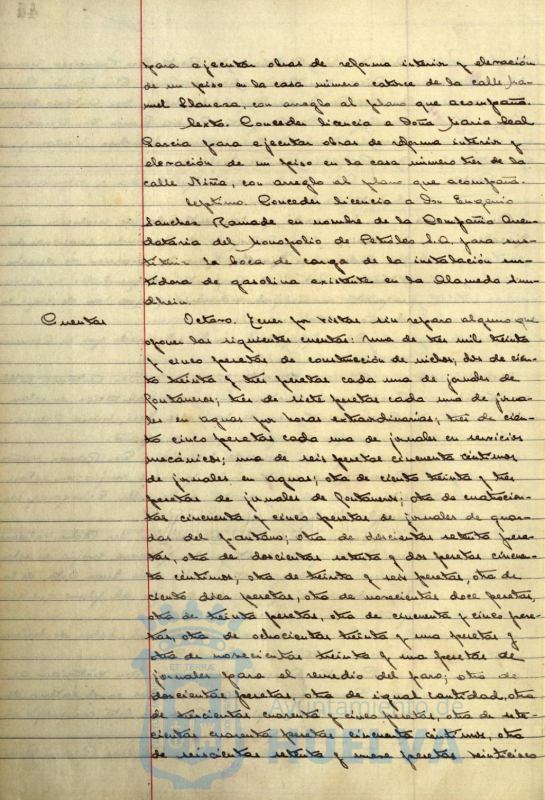 para ejecutar obras de reforma interior y elevación
de un piso en la casa número catorce de la calle Ma-
nuel Llaneza, con arreglo al plano que acompaña.
Sexto. Conceder licencia a Doña Maria Leal
Garcia para ejecutar obras de reforma interior y
elevación de un piso en la casa número tres de la
calle Niña, con arreglo al plano que acompaña.
Septimo. Conceder licencia a Don Eugenio
Sanchez Ramade en nombre de la Compañia Arren-
dataria del Monopolio de Petróleos S.A. para sus-
tituir la boca de carga de la instalación sur-
tidora de gasolina existente en la Alameda Sun-
dheim.
Cuentas
Octavo. Tener por vistas sin reparo alguno que
oponer las siguientes cuentas: una de tres mil treinta
y cinco pesetas de construcción de nichos; dos de cien-
to treinta y tres pesetas cada una de jornales de
fontaneros; tres de siete pesetas cada una de jorna-
les en aguas por horas extraordinarias; tres de cien-
to cinco pesetas cada una de jornales en servicios
mecánicos; una de seis pesetas cincuenta céntimos
de jornales en aguas; otra de ciento treinta y tres
pesetas de jornales de fontaneros; otra de cuatrocien-
tas cincuenta y cinco pesetas de jornales de guar-
das del pantano; otra de doscientas setenta pese-
tas, otra de doscientas setenta y dos pesetas cincuen-
ta céntimos, otra de treinta y seis pesetas, otra de
ciento doce pesetas, otra de novecientas doce pesetas,
otra de treinta pesetas, otra de cincuenta y cinco pese-
tas, otra de ochocientas treinta y una pesetas y
otra de novecientas treinta y una pesetas de
jornales para el remedio del paro; otra de
doscientas pesetas, otra de igual cantidad, otra
de trescientas cuarenta y cinco pesetas, otra de sete-
cientas cuarenta pesetas cincuenta céntimos, otra
de seiscientas setenta y nueve pesetas veinticinco
Ayuntamiento de
HUELVA